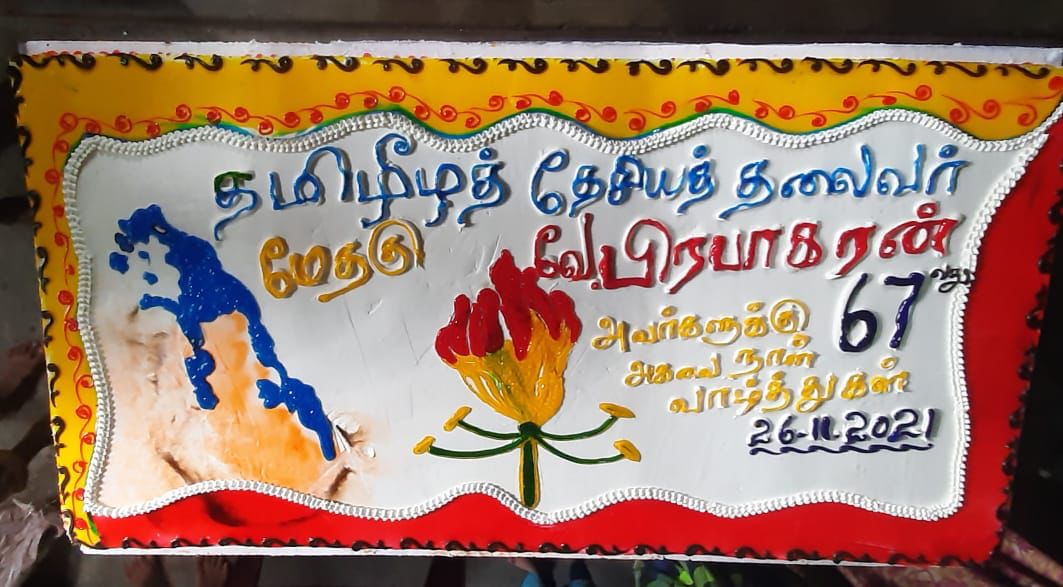 தமிழீழத் தேசியத் தலைவர்
மேதகு வே.பிரபாகரன்
67வது
அவர்களுக்கு
அகவை நாள்
வாழ்த்துகள்
26.11.2021